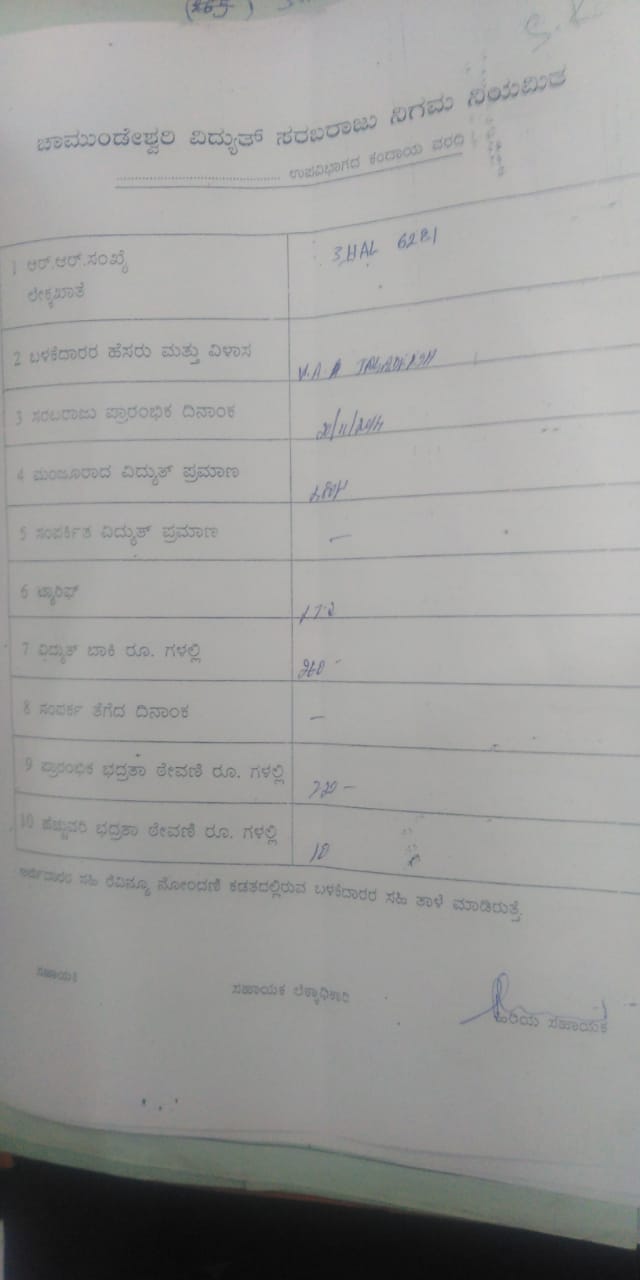 (265)
ಚಾಮುಂಡೇಶ್ವರಿ ವಿದ್ಯುತ್ ಸರಬರಾಜು ನಿಗಮ ನಿಯಮಿತ
.......................................... ಉಪವಿಭಾಗದ ಕಂದಾಯ ವರದಿ
1 ಆರ್.ಆರ್.ಸಂಖ್ಯೆ 3HAL 6281
ಲೆಕ್ಕಖಾತೆ
2 ಬಳಕೆದಾರರ ಹೆಸರು ಮತ್ತು ವಿಳಾಸ
3 ಸರಬರಾಜು ಪ್ರಾರಂಭಿಕ ದಿನಾಂಕ
4 ಮಂಜೂರಾದ ವಿದ್ಯುತ್ ಪ್ರಮಾಣ
5 ಸಂಪರ್ಕಿತ ವಿದ್ಯುತ್ ಪ್ರಮಾಣ —
6 ಟ್ಯಾರಿಫ್
7 ವಿದ್ಯುತ್ ಬಾಕಿ ರೂ. ಗಳಲ್ಲಿ 260 -
8 ಸಂಪರ್ಕ ತೆಗೆದ ದಿನಾಂಕ —
9 ಪ್ರಾರಂಭಿಕ ಭದ್ರತಾ ಠೇವಣಿ ರೂ. ಗಳಲ್ಲಿ
10 ಹೆಚ್ಚುವರಿ ಭದ್ರತಾ ಠೇವಣಿ ರೂ. ಗಳಲ್ಲಿ 10
ಅರ್ಜಿದಾರರ ಸಹಿ ರೆವಿನ್ಯೂ ನೋಂದಣಿ ಕಡತದಲ್ಲಿರುವ ಬಳಕೆದಾರರ ಸಹಿ ತಾಳೆ ಮಾಡಿರುತ್ತೆ.
ಸಹಾಯಕ ಸಹಾಯಕ ಲೆಕ್ಕಾಧಿಕಾರಿ ಹಿರಿಯ ಸಹಾಯಕ